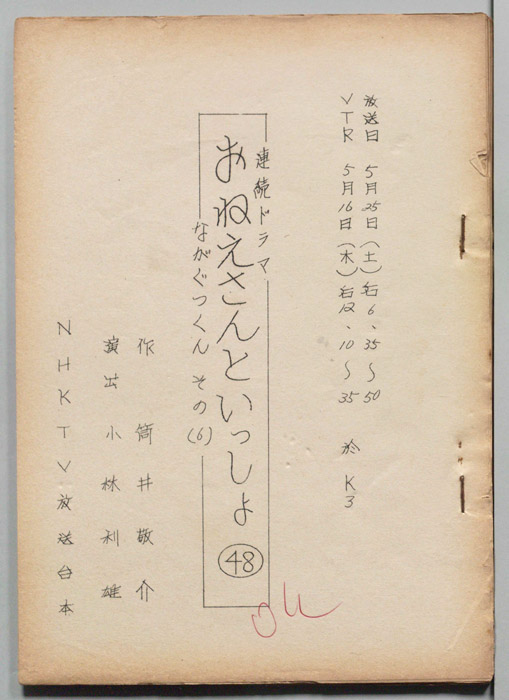 放送日 5月25日(土)后6、35〜50
VTR 5月16日(木)后12、10〜35 於 K3
連続ドラマ
おねえさんといっしょ 48
ながぐつくん その(6)
作 筒井敬介
演出 小林利雄
NHKTV放送台本
OK